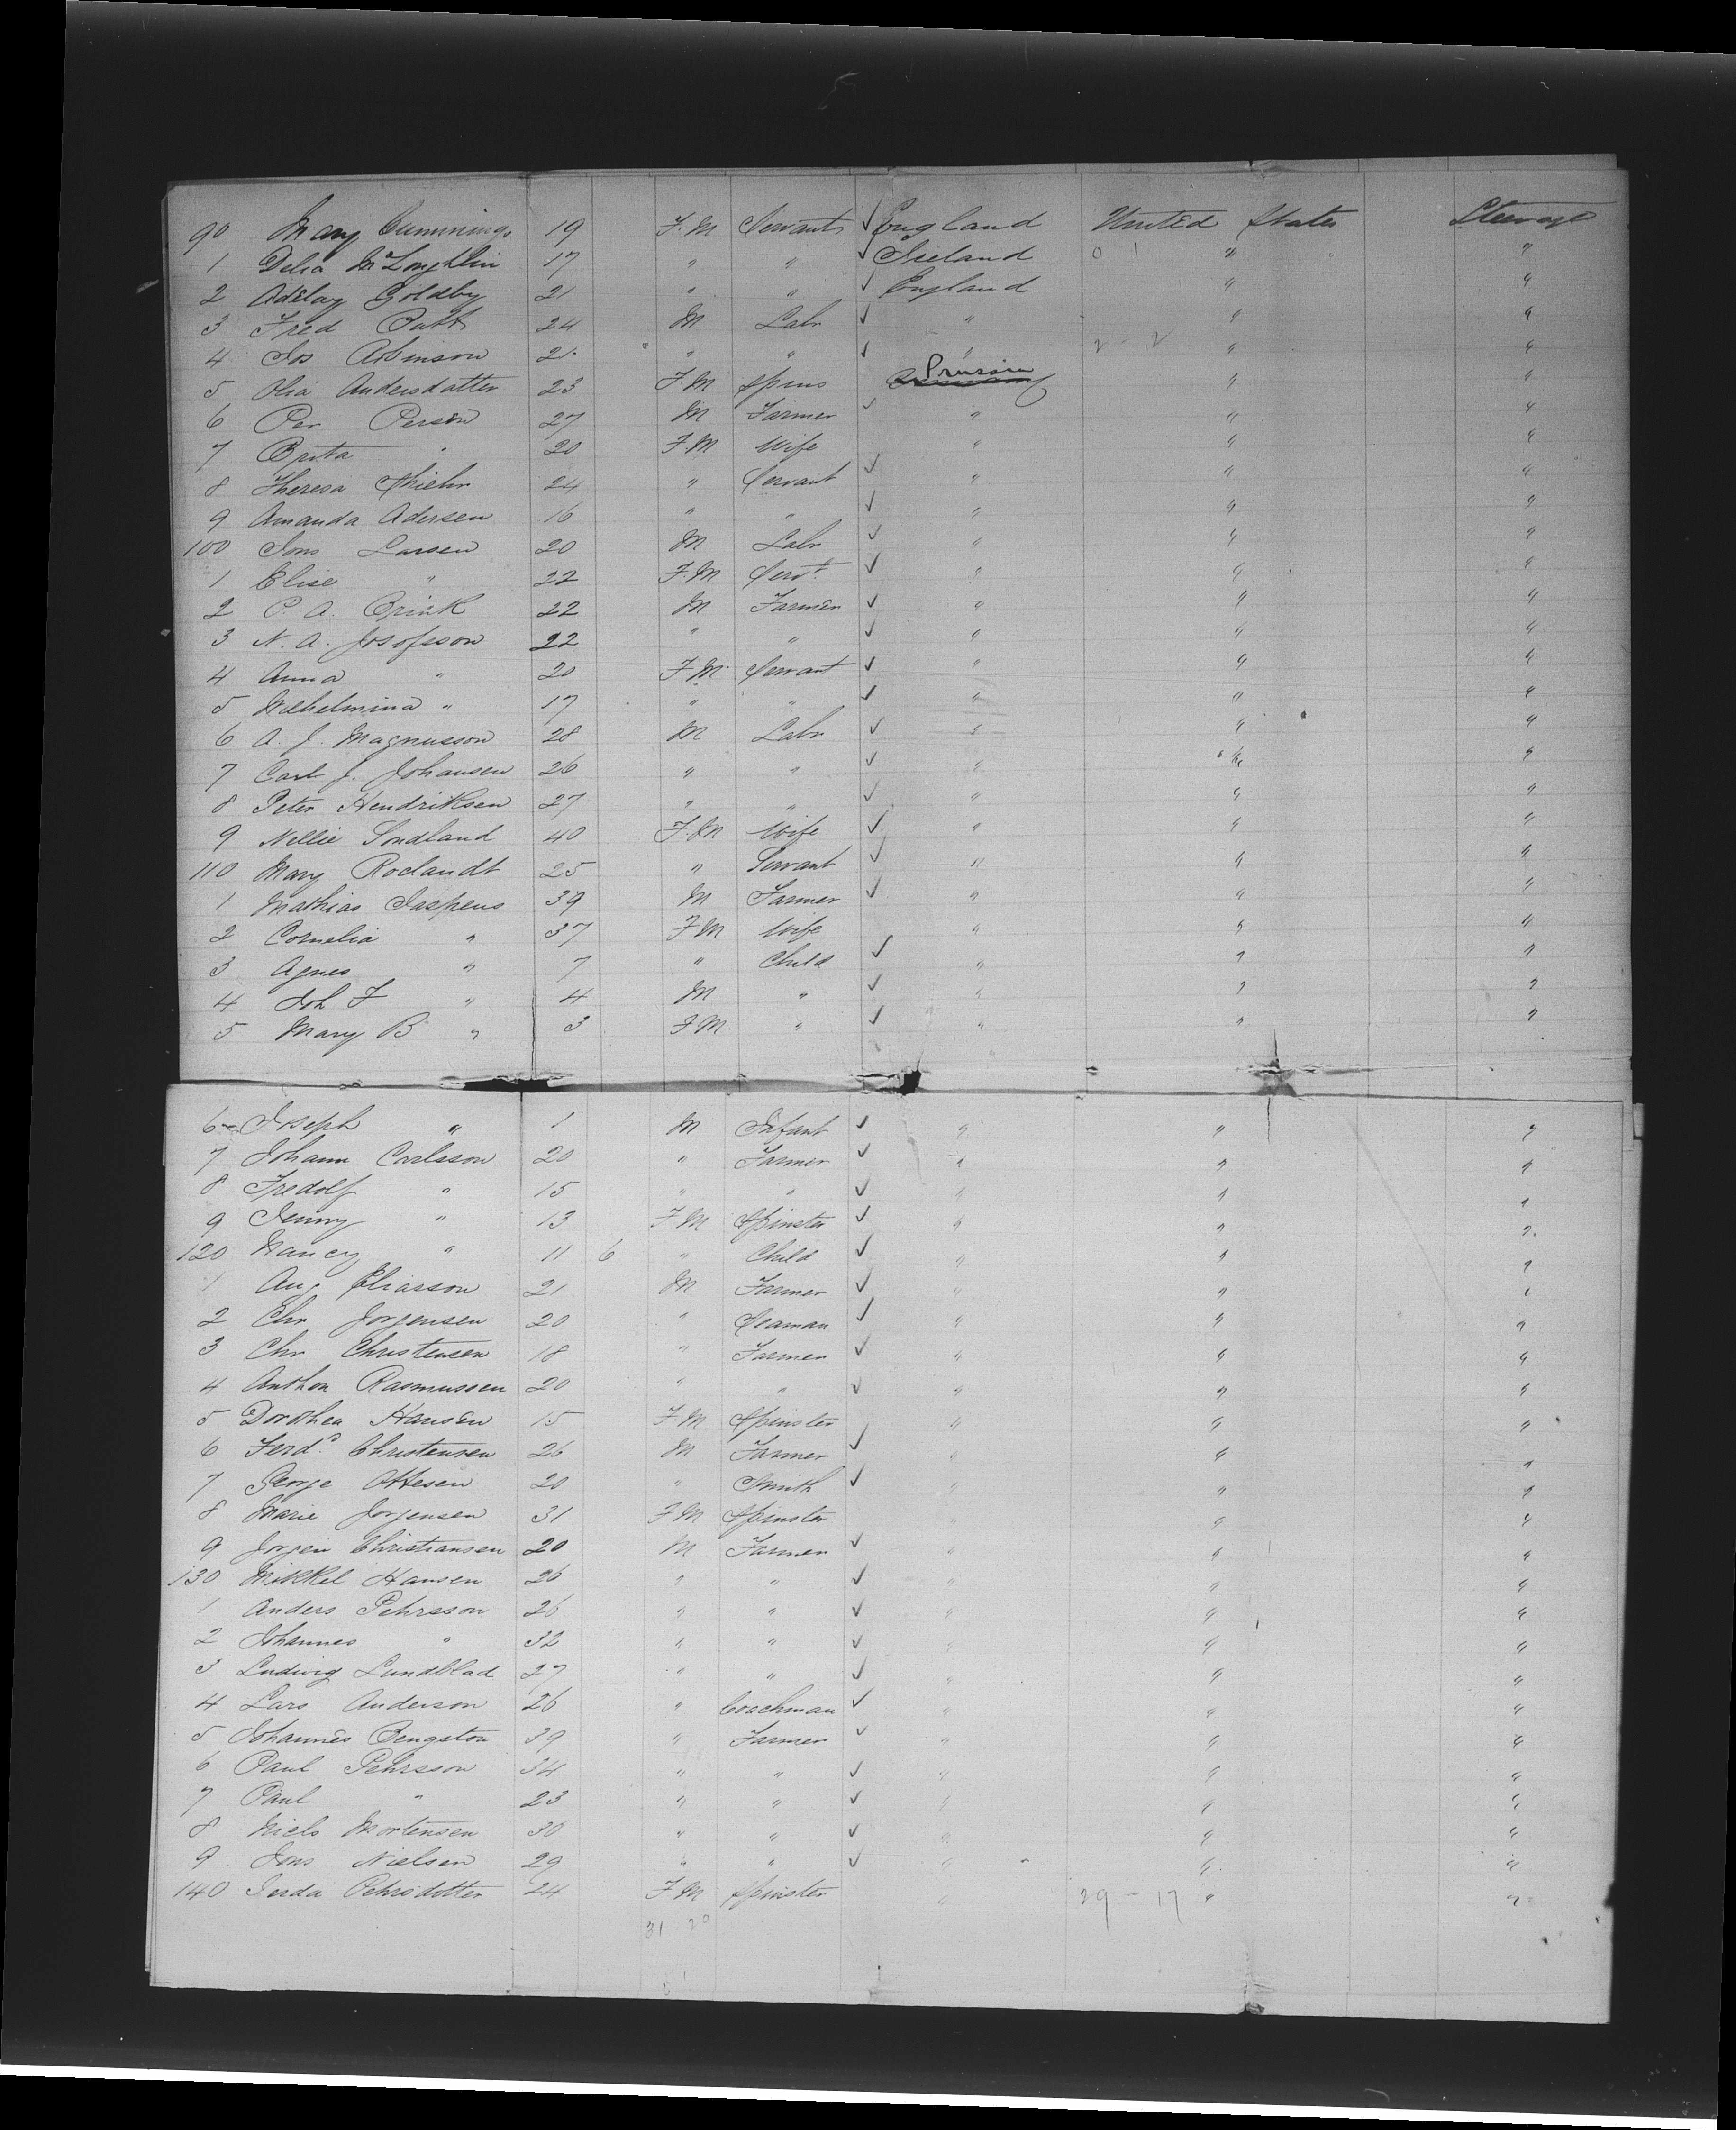 90 Mary Cummings 19 F.M Servants ✓ England United States Steerage
1 Delia McLoughlin 17 " " ✓ Ireland 0 1 " "
2 Adelay Goldby 21 " " ✓ England " "
3 Fred Butt 24 M Labr ✓ " " "
4 Jos Robinson 21 " " ✓ " 2 - 2 " "
5 Olia Andersdatter 23 F.M Spins Prussia " "
6 Per Person 27 M Farmer ✓ " " "
7 Brita " 20 F.M Wife " " "
8 Theresa 24 " Servant ✓ " " "
9 Amanda Adersen 16 " " ✓ " " "
100 Jons Larsen 20 M Labr ✓ " " "
1 Elise " 22 F.M Servt ✓ " " "
2 P. A. Brink 22 M Farmer ✓ " " "
3 N. A. Josofsson 22 " " ✓ " " "
4 Anna " 20 F.M. Servant ✓ " " "
5 Wilhelmina " 17 " " ✓ " " "
6 A. J. Magnusson 28 M Labr ✓ " " "
7 Carl J. Johansen 26 " " ✓ " " "
8 Peter Hendriksen 27 " " ✓ " " "
9 Nellie Sondland 40 F.M Wife ✓ " " "
110 Mary Roelandt 25 " Servant ✓ " " "
1 Mathias Jaspens 39 M Farmer ✓ " " "
2 Cornelia " 37 F.M Wife " " "
3 Agnes " 7 " Child ✓ " " "
4 Joh F " 4 M " ✓ " " "
5 Mary B " 3 F.M " ✓ " " "
6 Joseph " 1 M Infant ✓ " " "
7 Johann Carlsson 20 " Farmer ✓ " " "
8 Fredolf " 15 " " ✓ " " "
9 Jenny " 13 F.M Spinster ✓ " " "
120 Nancy " 11 6 " Child ✓ " " "
1 Aug Eliasson 21 M Farmer ✓ " " "
2 Chr Jorgensen 20 " Seaman ✓ " " "
3 Chr Christensen 18 " Farmer ✓ " " "
4 Anthon Rasmussen 20 " " ✓ " " "
5 Dorothea Hansen 15 F.M Spinster ✓ " " "
6 Ferd. Christensen 26 M Farmer ✓ " " "
7 George Ottesen 20 " Smith ✓ " " "
8 Marie Jorgensen 31 F.M Spinster " " "
9 Jorgen Christiansen 20 M Farmer ✓ " " "
130 Mikkel Hansen 26 " " ✓ " " "
1 Anders Pehrsson 26 " " ✓ " " "
2 Johannes " 32 " " ✓ " " "
3 Ludwig Lundblad 27 " " ✓ " " "
4 Lars Anderson 26 " Coachman ✓ " " "
5 Johannes Bengston 39 " Farmer ✓ " " "
6 Paul Pehrsson 34 " " ✓ " " "
7 Paul " 23 " " ✓ " " "
8 Niels Mortensen 30 " " ✓ " " "
9 Jons Nielsen 29 " " ✓ " " "
140 Gerda Pehrsdotter 24 F.M Spinster " 29 - 17 " "
31 20